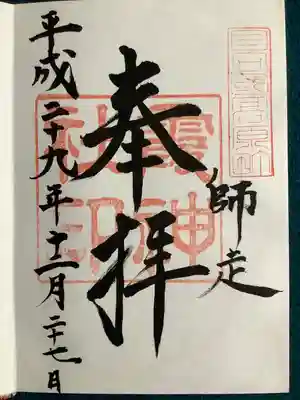 師走
奉拝
霞神
社印
平成二十九年十二月二十七日